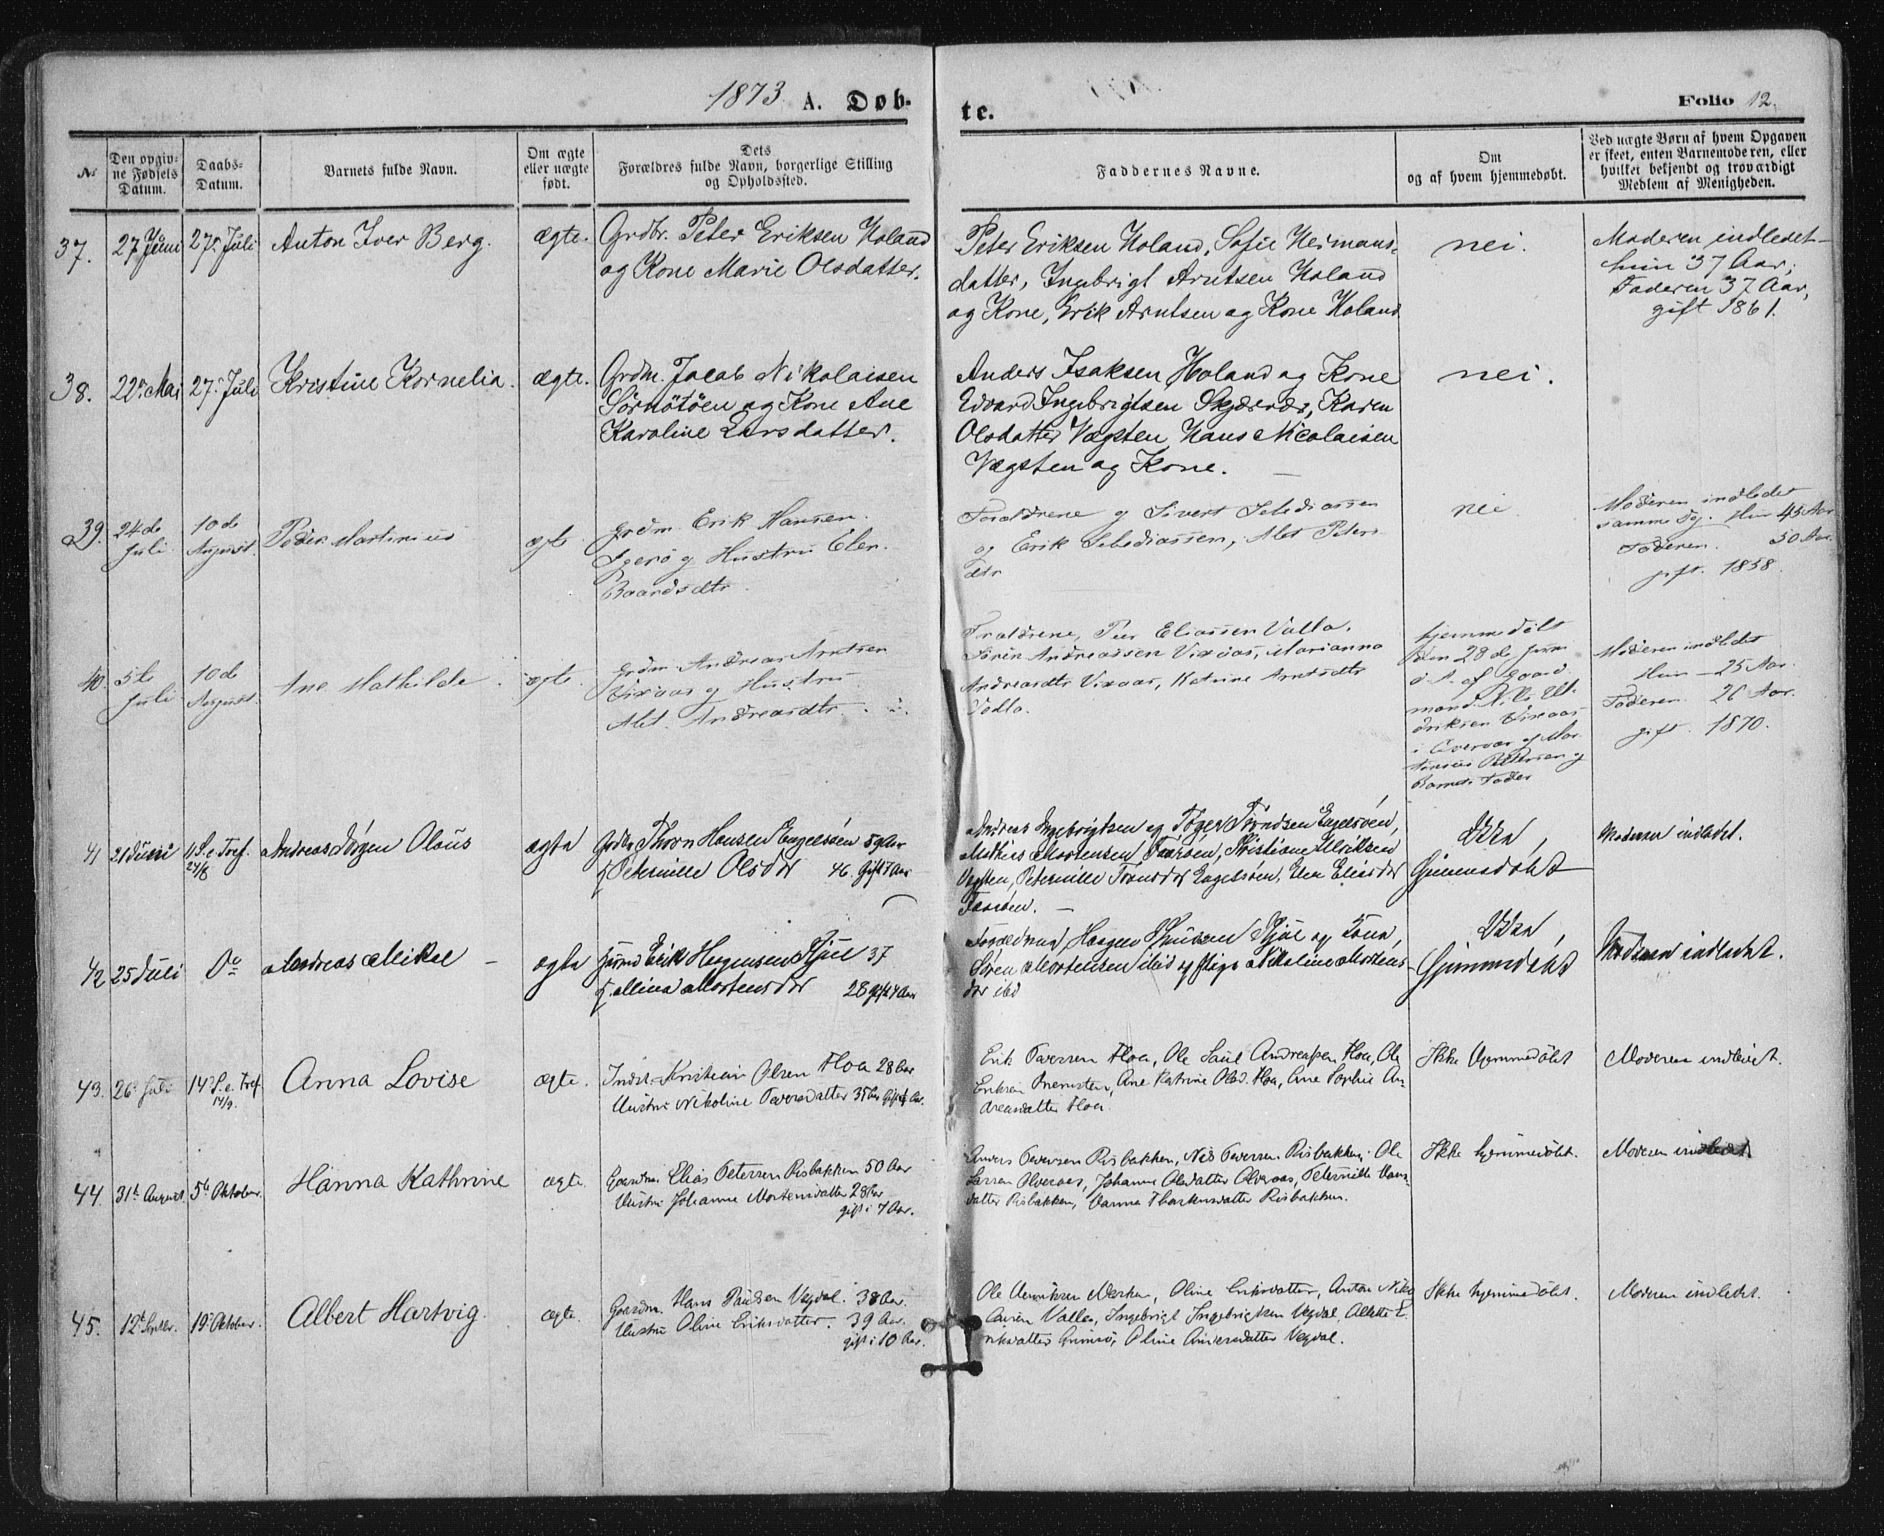 1873 A. Døb-
te.
Folio 12.
No
Den opgiv-
ne Fødsels
Datum.
Daabs-
Datum.
Barnets fulde Navn.
Om ægte
eller uægte
født.
Dets
Forældres fulde Navn, borgerlige Stilling
og Opholdssted.
Faddernes Navne.
Om
og af hvem hjemmedøbt.
Ved uægte Børn af hvem Opgaven
er skeet, enten Barnemoderen, eller
hvilket bekjendt og troværdigt
Medlem af Menigheden.
37. 27 Juni 27. Juli Anton Iver Berg. ægte.
Grdbr. Peter Eriksen Holand
og Kone Marie Olsdatter.
Peter Eriksen Holand, Sofie Heimans-
datter, Ingebrigt Arntsen Holand
og Kone, Erik Arntsen og Kone Holand
nei.
Moderen indledet
hun 37 Aar;
Faderen 37 Aar,
gift 1861.
38. 22. Mai 27. Juli Kristine Kornelia. ægte.
Grdm. Jacob Nikolaisen
og Kone Ane
Karoline Larsdatter.
Anders Isaksen Holand og Kone
Edvard Ingebrigtsen Skjærnæs, Karen
Olsdatter Vægsten Hans Nicolaisen
Vægsten og Kone.
nei.
39. 24de
Juli
10de
August.
Peder Martinius ægte
Grdm. Erik Hansen
og Hustru Elen
Baardsdtr.
Forældrene og Sivert
og Erik Alet Peters
dtr
nei
Moderen indledet
samme Dg. Hun 45 Aar
Faderen. 50 Aar.
gift. 1858.
40 5te
Juli
10de
August.
Ane Mathilde. ægte.
Grdm. Andreas Arntsen
Vixaas og Hustru
Alet Andreasdtr.
Forældrene, Peer Eliassen Valla.
Sören Andreassen Vixaas, Marianna
Andreasdtr Vixaas, Katrine Arntsdtr
Valla.
hjemmedöbt
den 28de
d. A. af Gaard
mand Nils
Vixaas
i Overvær af Mar
Petersen og
Barnets Fader
Moderen indledet
Hun 25 Aar.
Faderen 26 Aar.
gift. 1870.
41 21 Juni 11 S. e. Tref.
24/8
Andreas Jørgen Olaus ægte
Hansen Engelsøen 59 Aar
og Peternille Olsdr 46. Gift 7 Aar
Andreas Ingebrigtsen og Engelsøen,
Mathis Mortensen Kristiane Ulriksen
Vægsten, Peternille Engelsøen, Elen Eliasdr
Ikke
Gjemmedøbt
Moderen indledet.
42 25 Juli Do Andreas Mikal ægte
Erik Haagensen 37
og Mina Mortensdr 28 gift 4 Aar
Forældrene, Haagen og Kone,
Søren Mortensen ibid og Pige Nikoline Mortens-
dr ibd
Ikke
Gjemmedøbt
Moderen indledet.
43. 26 Juli 14 S. e. Tref.
14/9.
Anna Lovise ægte.
Inds. Kristian Olsen Hoa 28 Aar
Hustru Nikoline Pedersdatter 35 Aar Gift Aar.
Erik Pedersen Hoa, Ole Paul Andreassen Hoa, Ole
Eriksen Ane Katrine Olsd. Hoa, Ane Sophie An-
dreasdatter Hoa.
Ikke Hjemmedøbt
Moderen indledet.
44. 31te August 5te Oktober. Hanna Kathrine ægte.
Gaardm. Elias Petersen Risbakken 50 Aar
Hustru Johanne Mortensdatter 28 Aar
gift i 7 Aar.
Anders Pedersen Risbakken, Nils Pedersen Risbakken, Ole
Larsen Olderaas, Johanne Olsdatter Olderaas, Peternille Hans-
datter Risbakken, Hanna Risbakken.
Ikke hjemmedøbt.
Moderen indledet
45. 12te Septbr. 19de Oktober. Albert Hartvig. ægte.
Gaardm. Hans Paulsen Vegdal. 38 Aar.
Hustru Oline Eriksdatter. 39 Aar.
gift i 10 Aar.
Ole Henriksen Oline Eriksdatter, Anton Niko
laisen Valla, Ingebrigt Ingebrigtsen Vegdal, Alette E-
riksdatter Oline Andersdatter Vegdal.
Ikke hjemmedøbt.
Moderen indledet.